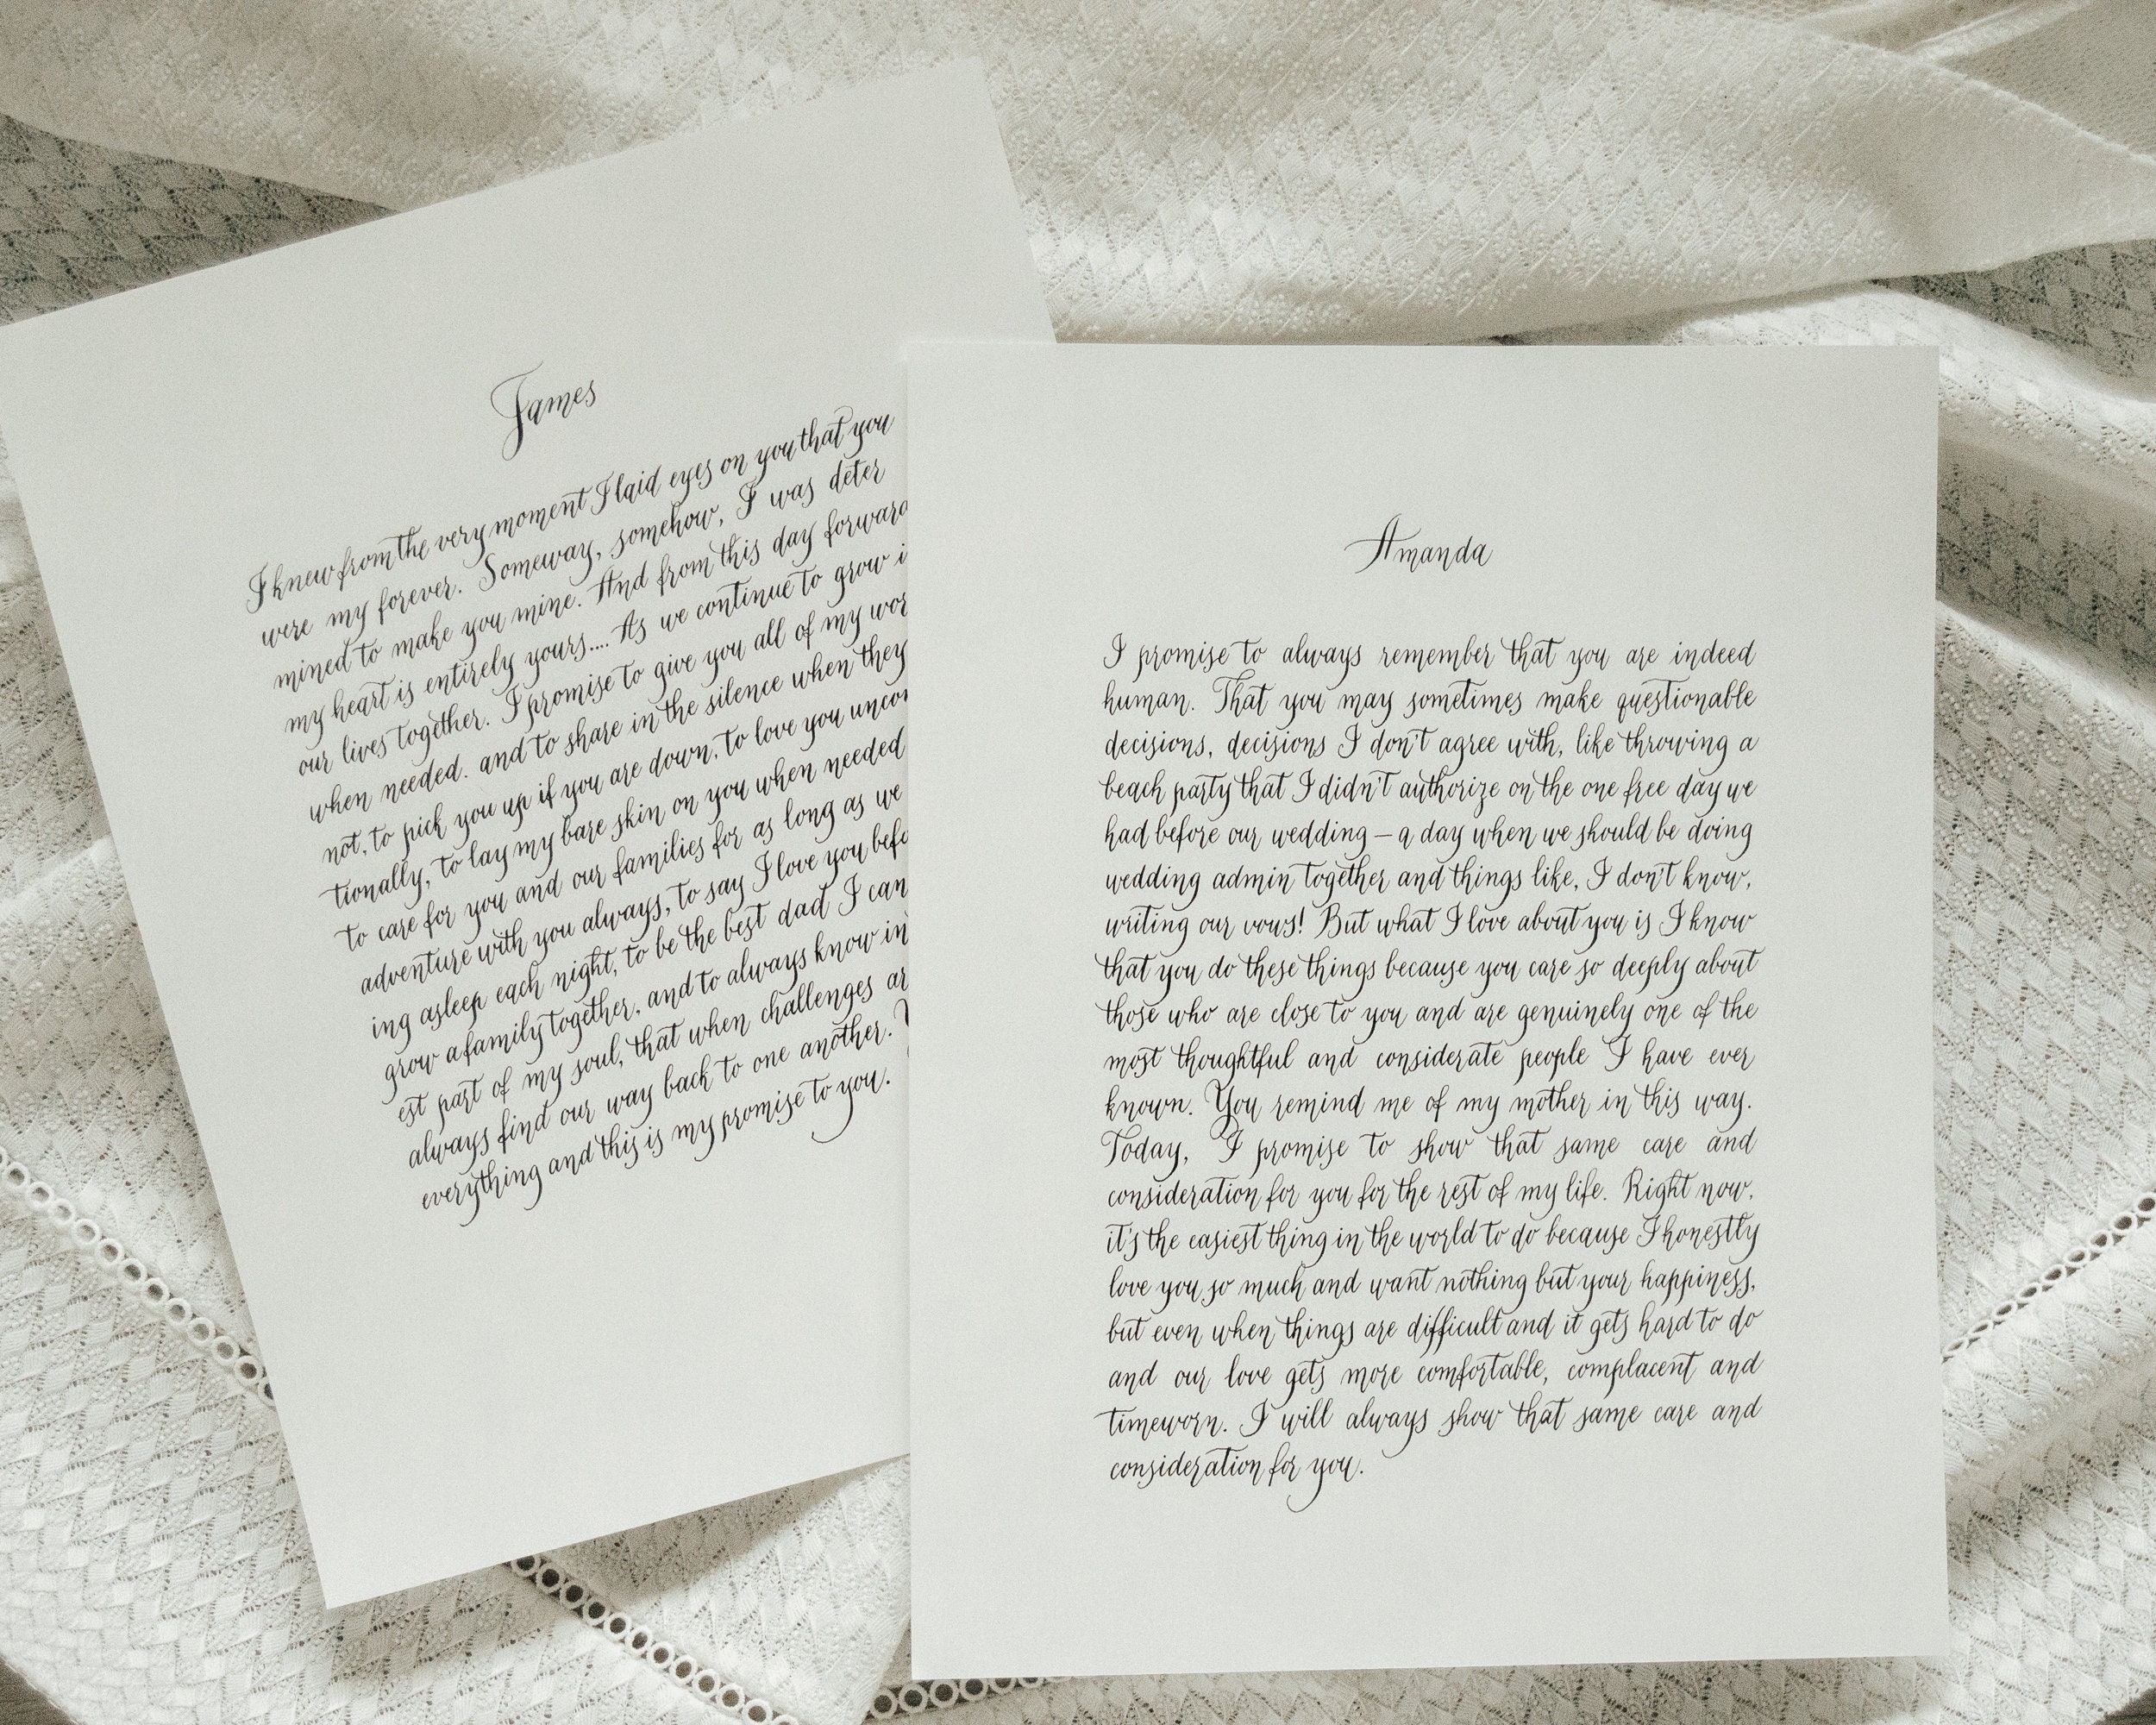 James
I knew from the very moment I laid eyes on you that you
were my forever. Someway, somehow, I was deter
mined to make you mine. And from this day forward
my heart is entirely yours.... As we continue to grow i
our lives together. I promise to give you all of my wor
when needed. and to share in the silence when they
not, to pick you up if you are down, to love you uncon
tionally, to lay my bare skin on you when needed
to care for you and our families for as long as we
adventure with you always, to say I love you befo
ing asleep each night, to be the best dad I can
grow a family together, and to always know in
est part of my soul, that when challenges ar
always find our way back to one another.
everything and this is my promise to you.
Amanda
I promise to always remember that you are indeed
human. That you may sometimes make questionable
decisions, decisions I don't agree with, like throwing a
beach party that I didn't authorize on the one free day we
had before our wedding – a day when we should be doing
wedding admin together and things like, I don't know,
writing our vows! But what I love about you is I know
that you do these things because you care so deeply about
those who are close to you and are genuinely one of the
most thoughtful and considerate people I have ever
known. You remind me of my mother in this way.
Today, I promise to show that same care and
consideration for you for the rest of my life. Right now,
it's the easiest thing in the world to do because I honestly
love you so much and want nothing but your happiness,
but even when things are difficult and it gets hard to do
and our love gets more comfortable, complacent and
timeworn. I will always show that same care and
consideration for you.